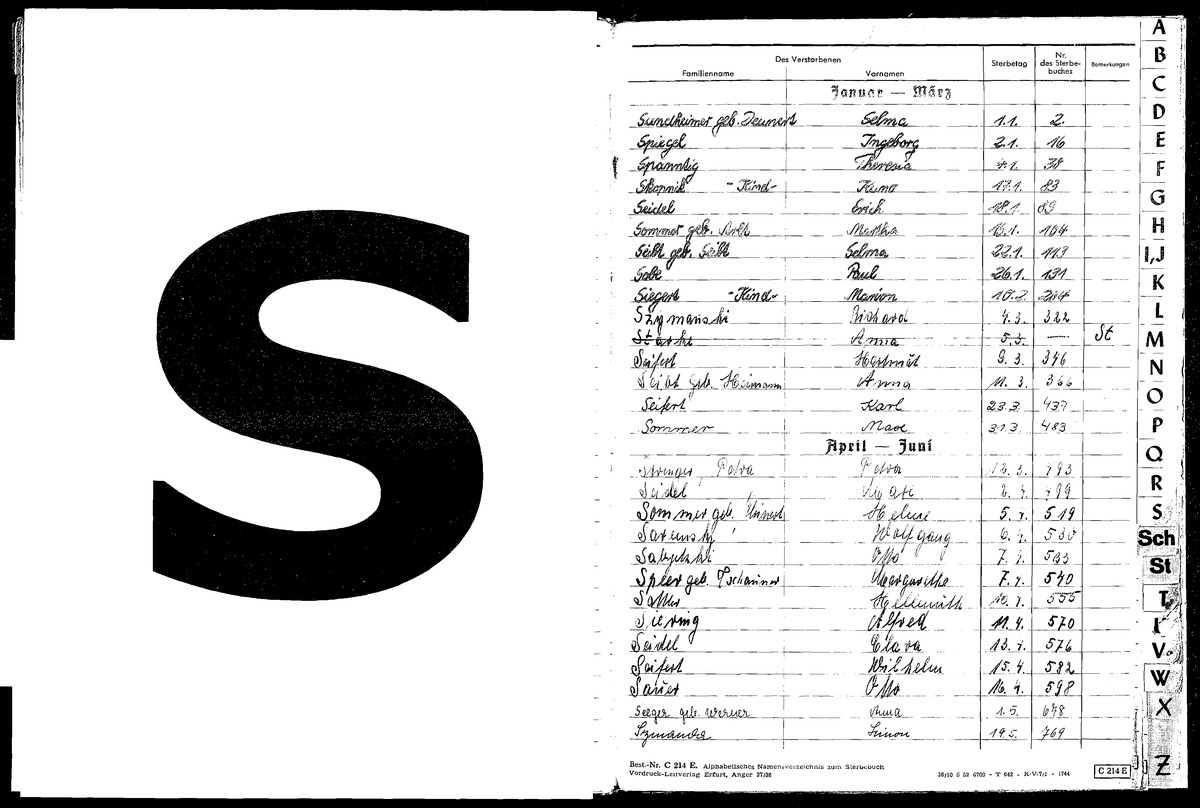 S
Des Verstorbenen
Familienname Vornamen Sterbetag Nr. des Sterbe-buches Bemerkungen
Januar — März
Sundheimer geb. Deunert Selma 1.1. 2.
Spiegel Ingeborg 2.1. 16
Spanntig Theresia 4.1. 38
Skopnik -Kind- 17.1. 83
Seidel Erich 18.1. 89
Sommer geb. Martha 15.1. 104
Seibt geb. Seibt Selma 22.1. 113
Paul 26.1. 131
Siegert -Kind- Marion 10.2. 204
Szymanski Richard 4.3. 322
Starke Anna 5.3. — St
Seifert Hartmut 9.3. 346
Seibt geb. Heimann Anna 11.3. 366
Seifert Karl 23.3. 437
Sommer Max 31.3. 483
April — Juni
Petra Petra 493
Seidel 2.4. 499
Sommer geb. Helene 5.4. 519
Wolfgang 6.4. 530
Otto 7.4. 533
Speer geb. Tschanner Margarethe 7.4. 540
Sattler Hellmuth 10.4. 555
Siering Alfred 11.4. 570
Seidel Clara 13.4. 576
Seifert Wilhelm 15.4. 582
Sauer Otto 16.4. 598
Seeger geb. Werner Anna 1.5. 678
Szmanda Simon 19.5. 769
Best.-Nr. C 214 E. Alphabetisches Namensverzeichnis zum Sterbebuch
Vordruck-Leitverlag Erfurt, Anger 37/38
C 214 E
A
B
C
D
E
F
G
H
I,J
K
L
M
N
O
P
Q
R
S
Sch
St
T
V
W
X
Z